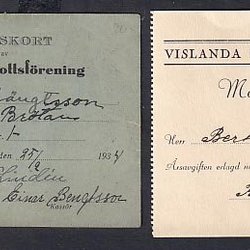 SKORT
av
ottsförening
Brötan
den 25/9 1934
Lindén
Einar Bengtsson
Kassör
VISLANDA
Me
Herr Ber
Årsavgiften erlagd me